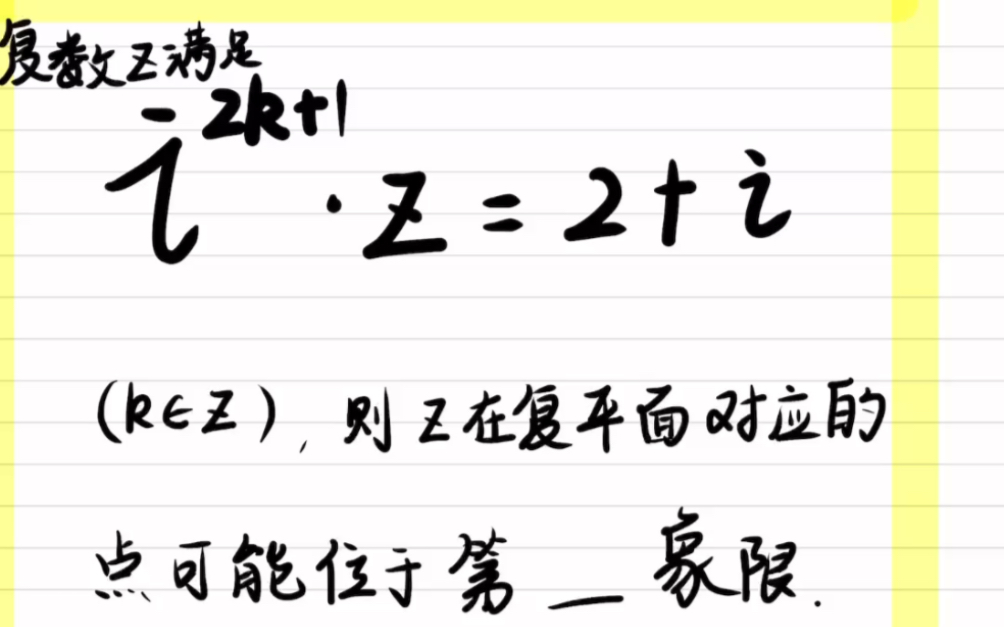 复数z满足
i^{2k+1} · z = 2 + i
(k∈Z), 则z在复平面对应的
点可能位于第 __ 象限.